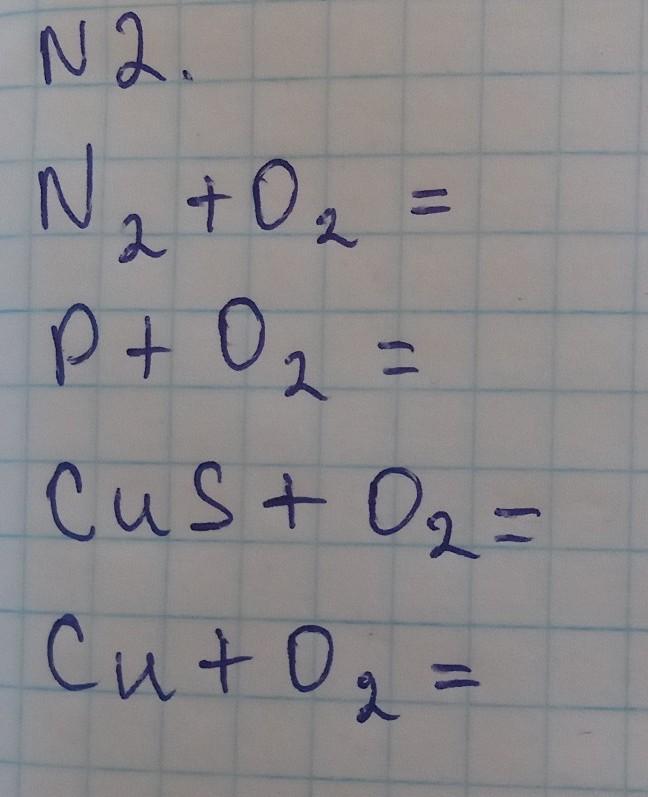 N 2.
N₂ + O₂ =
P + O₂ =
CuS + O₂ =
Cu + O₂ =